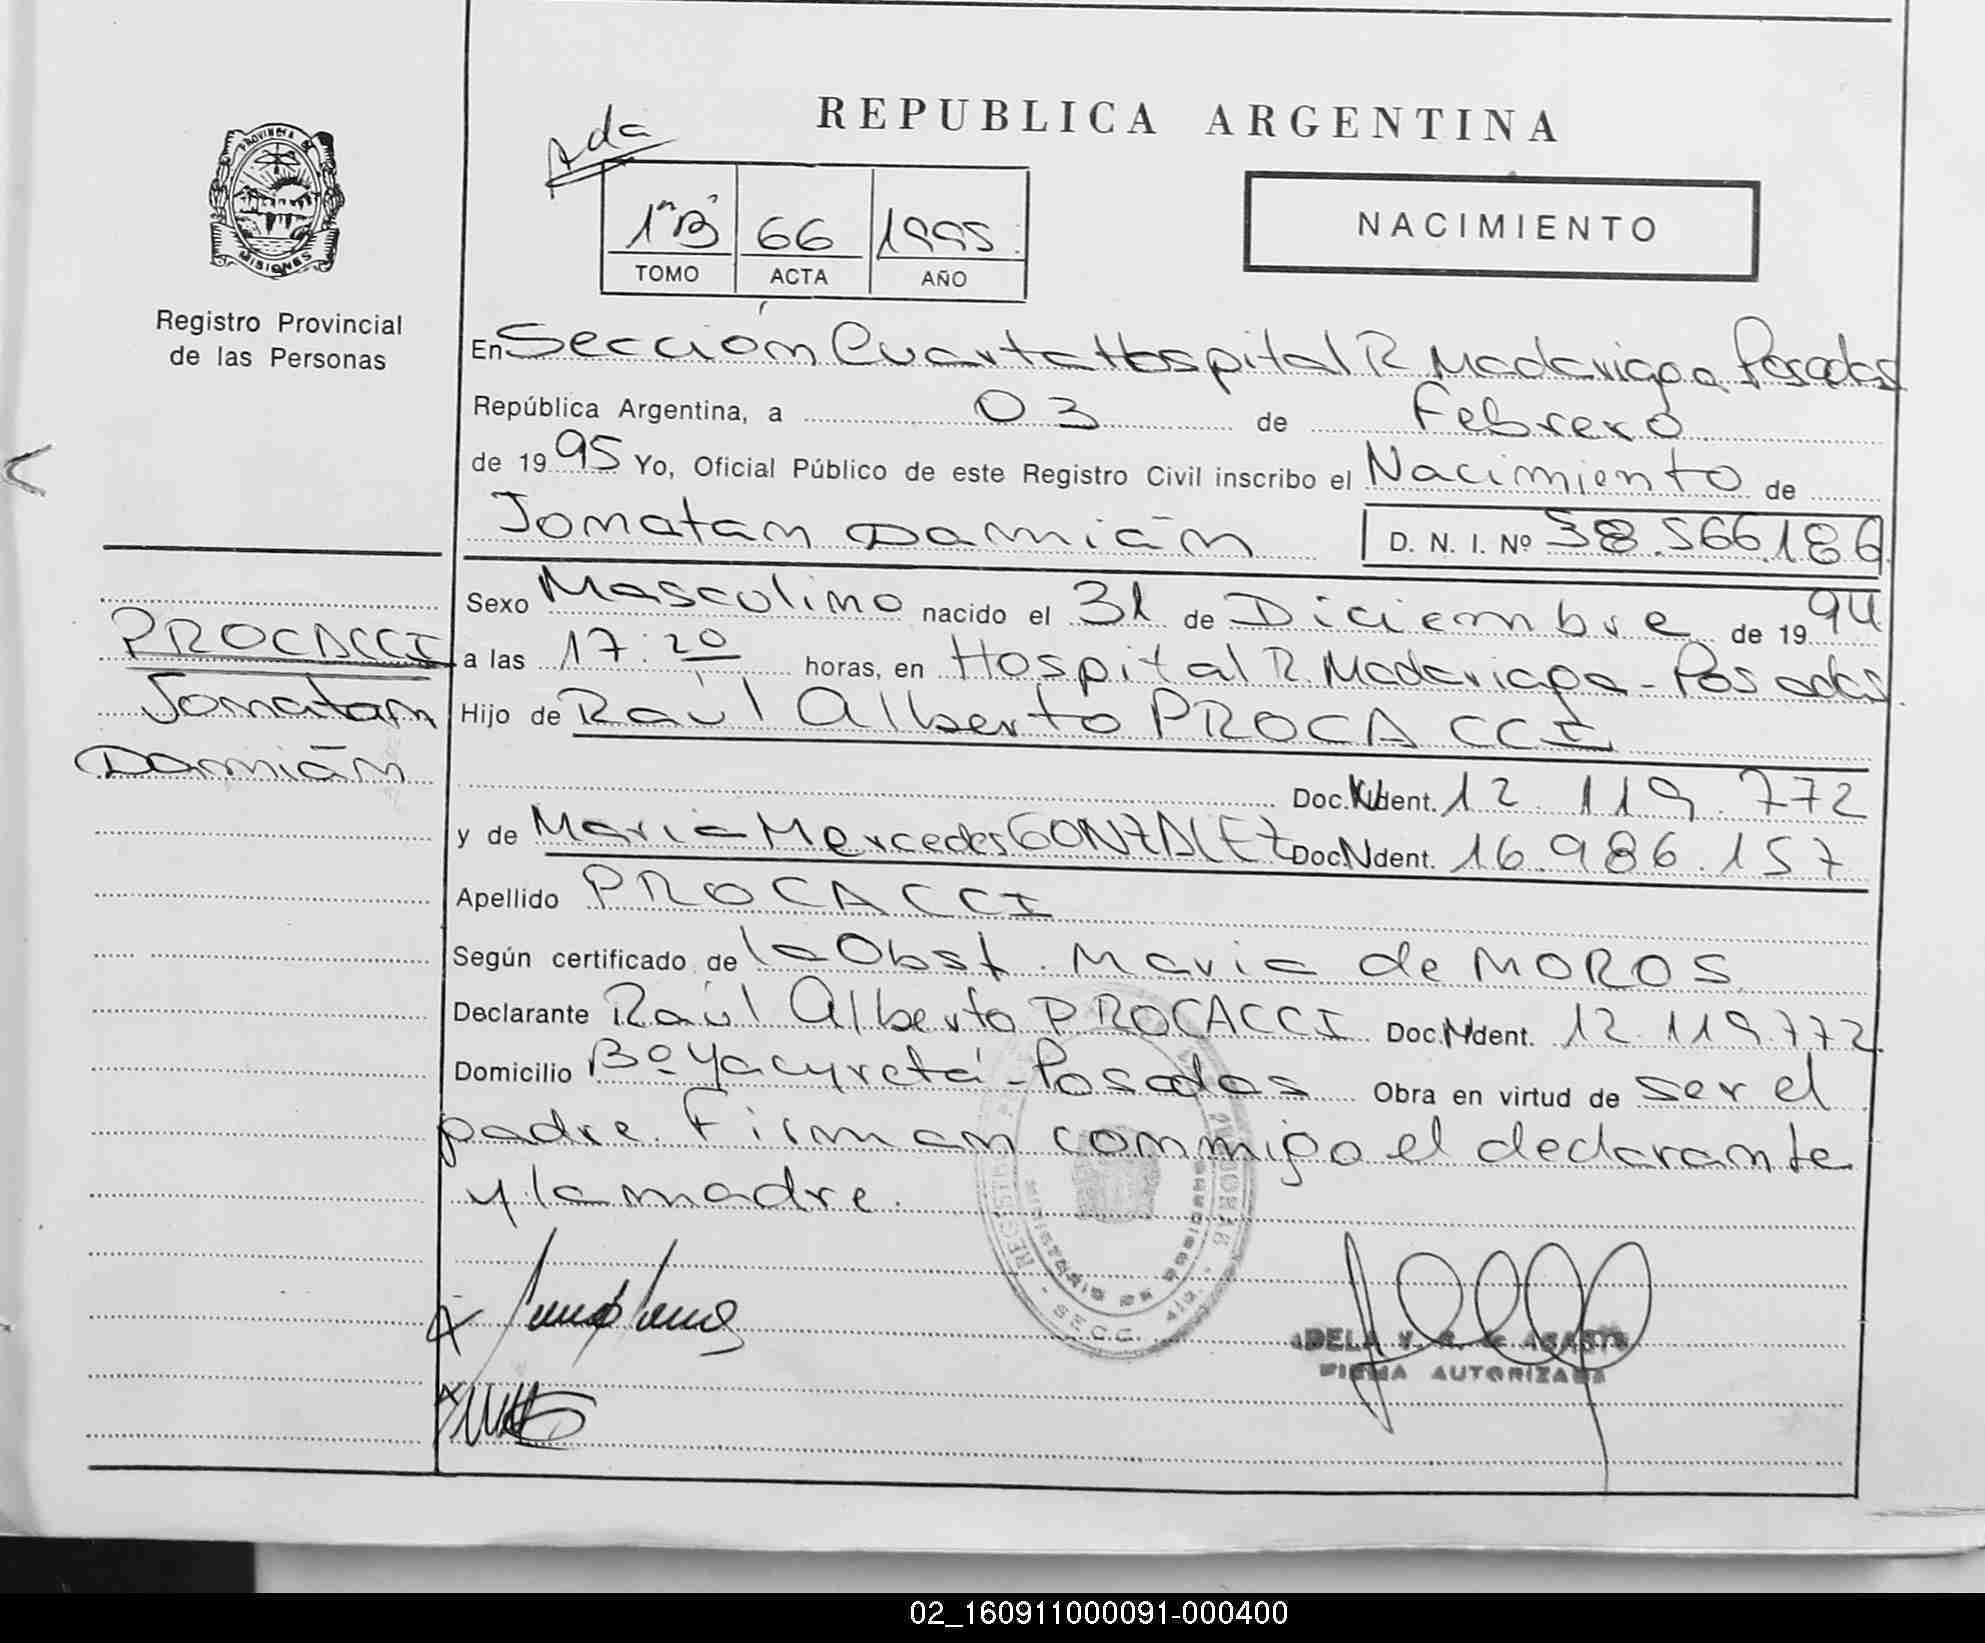 REPUBLICA ARGENTINA
Ada
PROVINCIA DE
MISIONES
Registro Provincial
de las Personas
1"B" 66 1995
TOMO ACTA AÑO
NACIMIENTO
En Sección Cuarta Hospital R Madariaga Posadas
República Argentina, a 03 de Febrero
de 1995 Yo, Oficial Público de este Registro Civil inscribo el Nacimiento de
Jonatan Damián D. N. I. Nº 38.566.186
Sexo Masculino nacido el 31 de Diciembre de 1994
a las 17:20 horas, en Hospital R. Madariaga - Posadas
Hijo de Raúl Alberto PROCACCI
Doc. Ident. 12.119.772
y de Maria Mercedes GONZALEZ Doc. Ident. 16.986.157
Apellido PROCACCI
PROCACCI
Jonatan
Damián
Según certificado de la Obst. Maria de MOROS
Declarante Raúl Alberto PROCACCI Doc. Ident. 12.119.772
Domicilio Bº Yacyretá - Posadas Obra en virtud de ser el
padre. Firman conmigo el declarante
y la madre.
REGISTRO
MINISTERIO DE
SECC.
ADELA
FIRMA AUTORIZADA
02_160911000091-000400